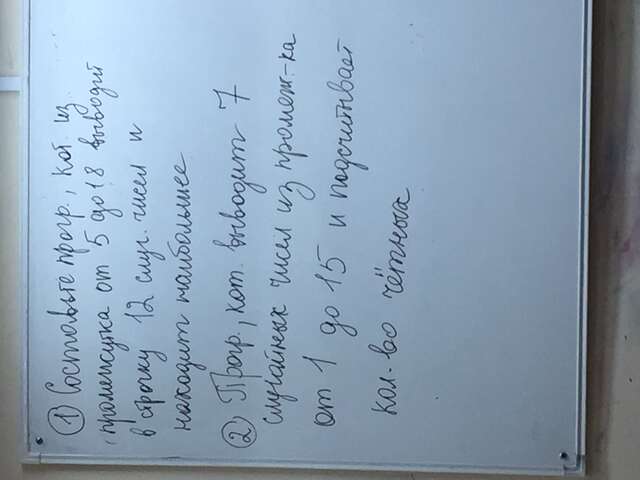 ① Составьте прогр., кот. из
промежутка от 5 до 18 выводит
в строчку 12 случ. чисел и
находит наибольшее
② Прогр., кот. выводит 7
случайных чисел из промеж-ка
от 1 до 15 и подсчитывает
кол-во чётных